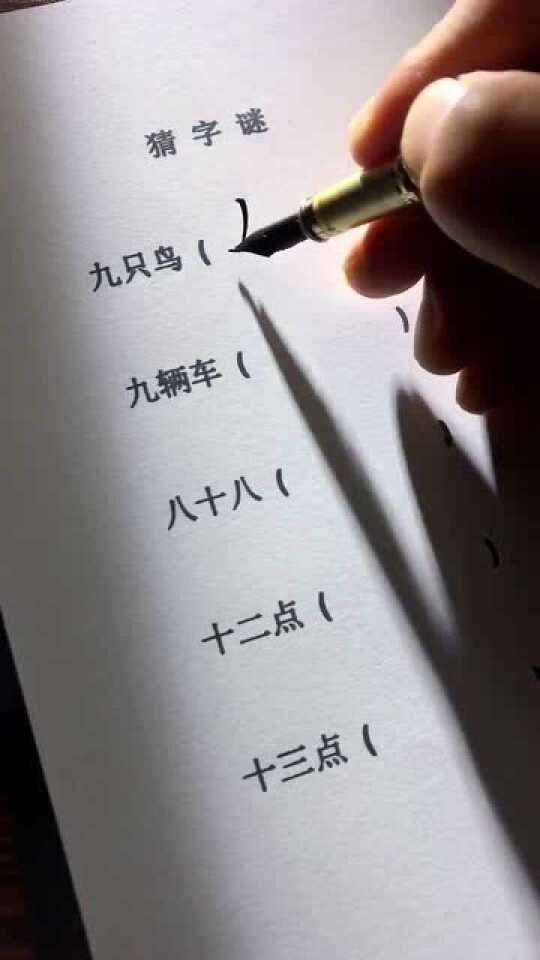 猜字谜
九只鸟（ ）
九辆车（ ）
八十八（ ）
十二点（ ）
十三点（ ）